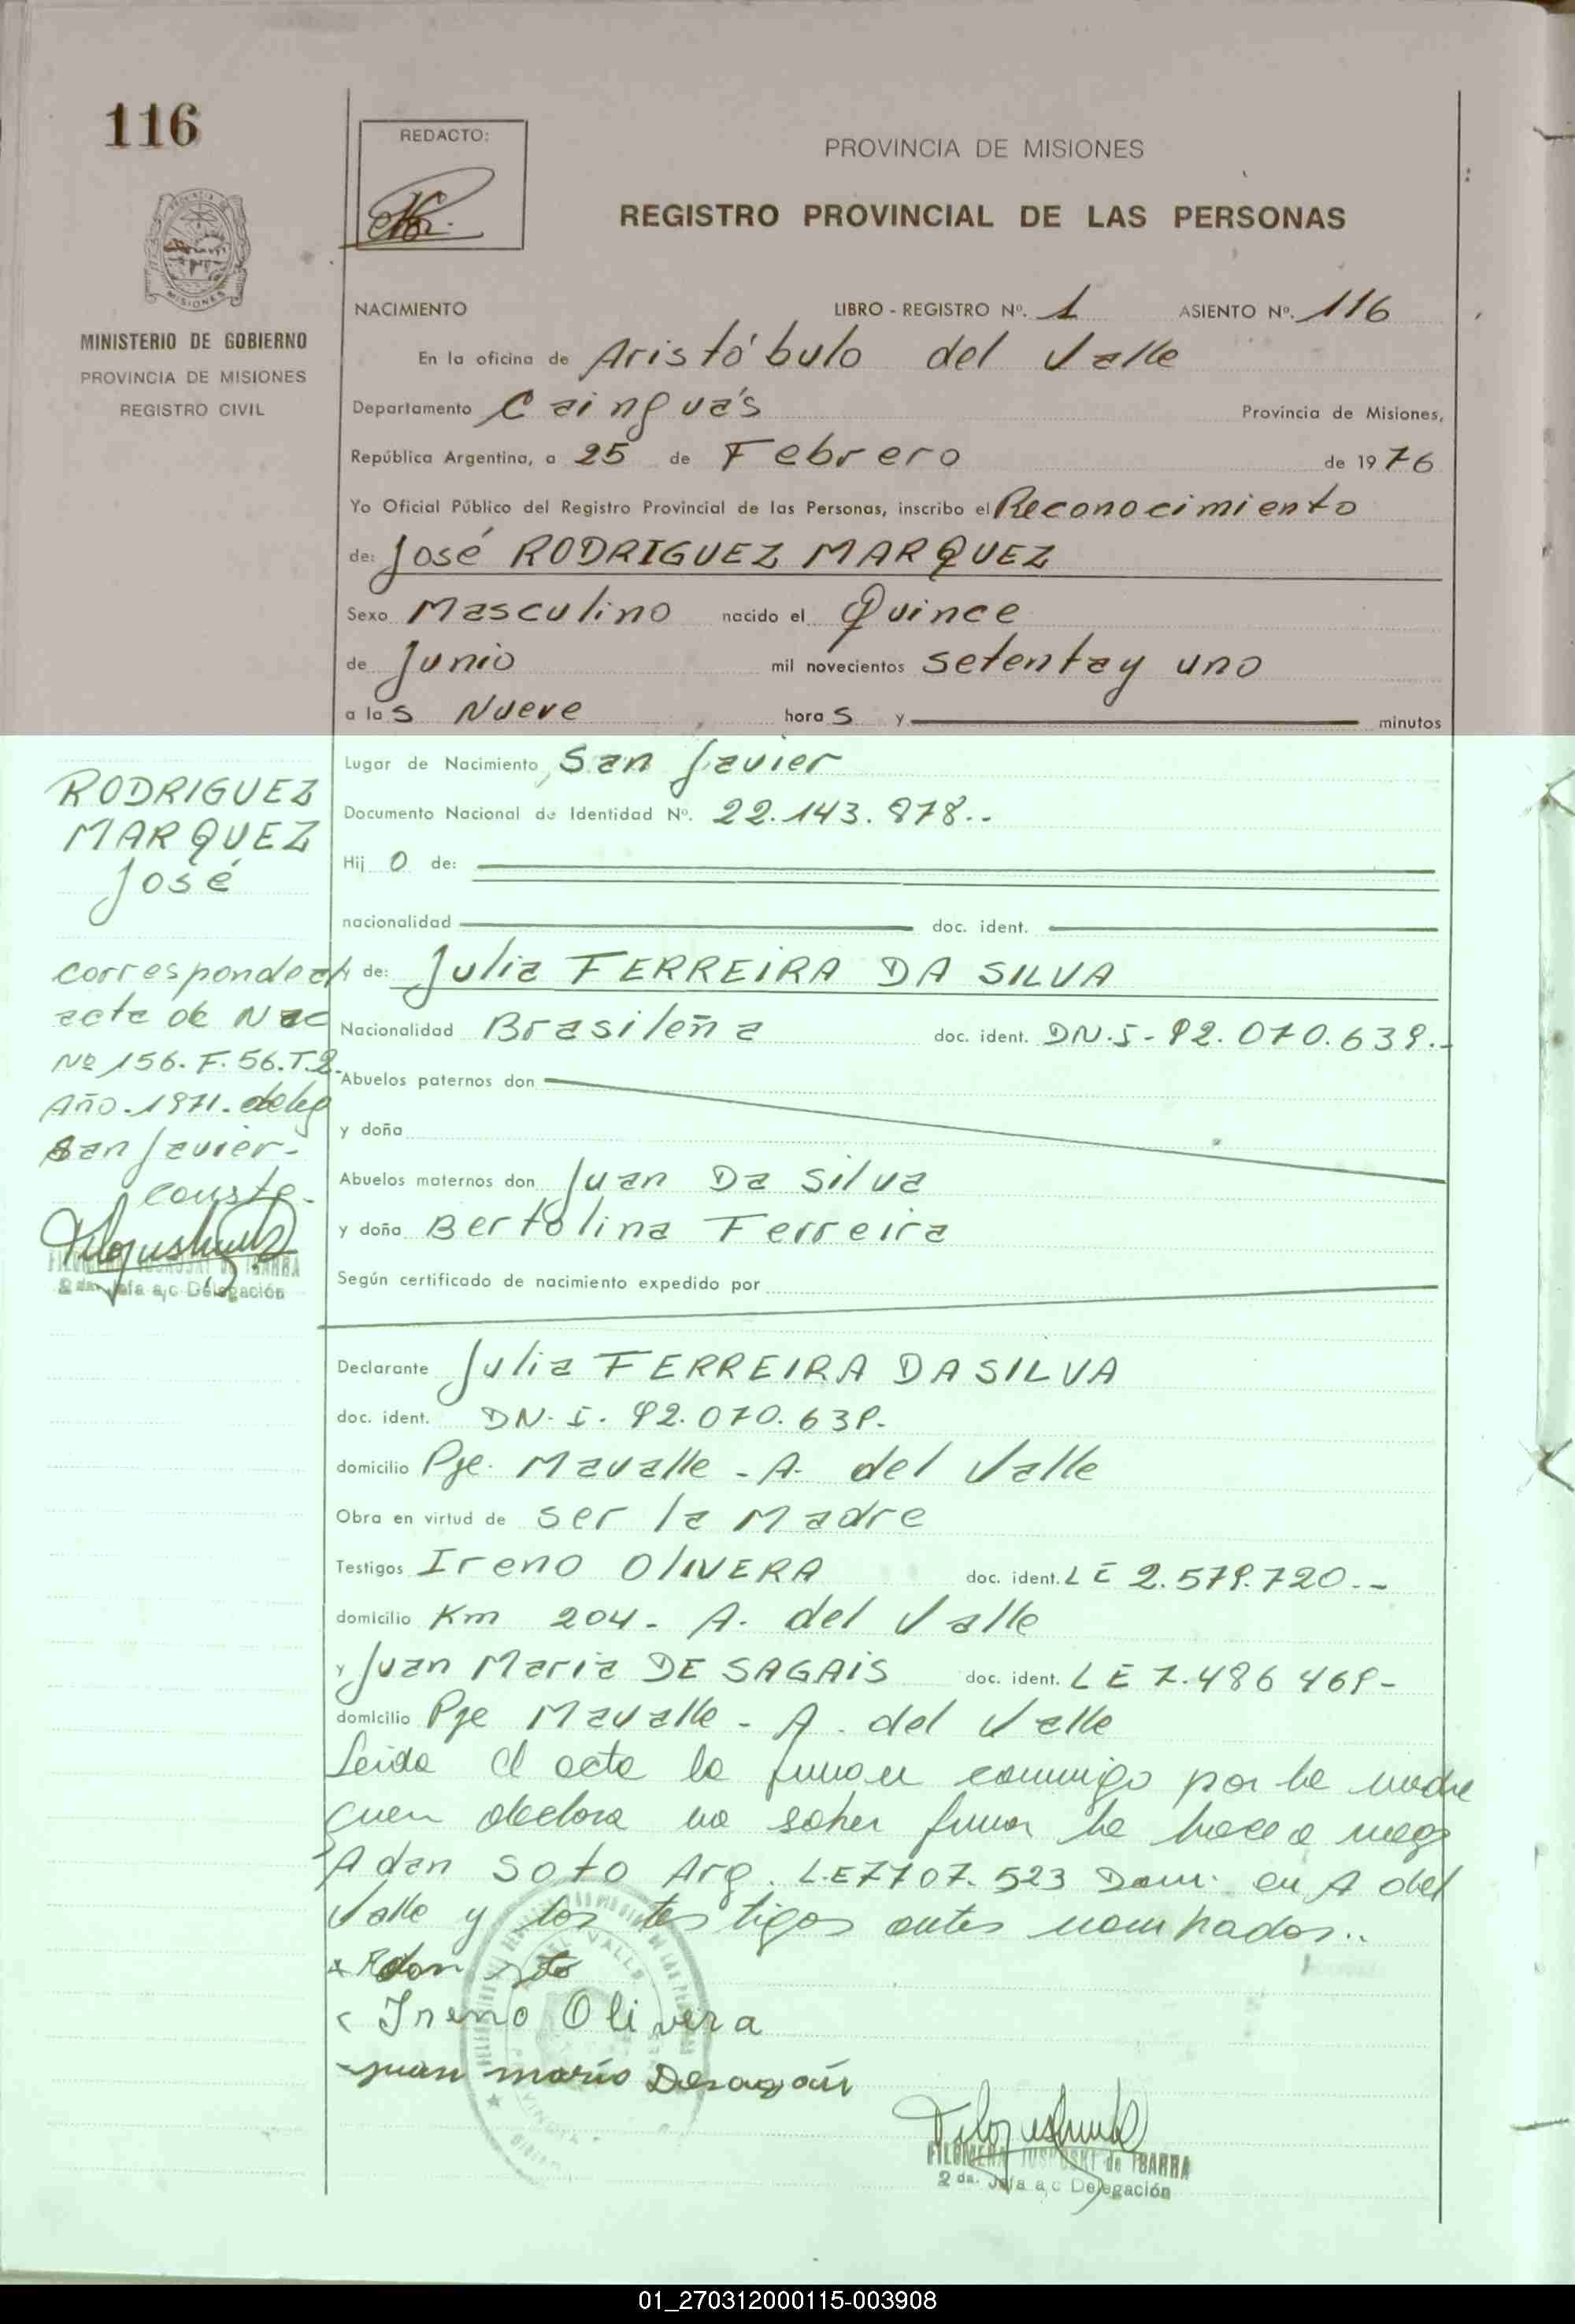 116
REDACTO:
PROVINCIA DE MISIONES
REGISTRO PROVINCIAL DE LAS PERSONAS
MISIONES
MINISTERIO DE GOBIERNO
PROVINCIA DE MISIONES
REGISTRO CIVIL
NACIMIENTO LIBRO - REGISTRO Nº. 1 ASIENTO Nº. 116
En la oficina de Aristóbulo del Valle
Departamento Cainguás Provincia de Misiones,
República Argentina, a 25 de Febrero de 1976
Yo Oficial Público del Registro Provincial de las Personas, inscribo el Reconocimiento
de: José RODRIGUEZ MARQUEZ
Sexo Masculino nacido el Quince
de Junio mil novecientos setenta y uno
a las Nueve horas y minutos
Lugar de Nacimiento San Javier
Documento Nacional de Identidad Nº. 22.143.978..
Hijo de:
nacionalidad doc. ident.
y de: Julia FERREIRA DA SILVA
Nacionalidad Brasileña doc. ident. DN.I- 92.070.639.-
Abuelos paternos don
y doña
Abuelos maternos don Juan Da Silva
y doña Bertolina Ferreira
Según certificado de nacimiento expedido por
RODRIGUEZ
MARQUEZ
José
corresponde al
acta de Nac
Nº 156. F. 56. T.2.
Año. 1971. deleg
San Javier-
conste.
FILOMENA JUSKOSKI de IBARRA
2 da. Jefa a/c Delegación
Declarante Julia FERREIRA DA SILVA
doc. ident. DN. I. 92.070.639.
domicilio Pje. Mavalle - A. del Valle
Obra en virtud de ser la Madre
Testigos Ireno OlIVERA doc. ident. LE 2.579.720.-
domicilio Km 204 - A. del Valle
y Juan Maria DE SAGAIS doc. ident. LE 7.486 469-
domicilio Pje Mavalle - A. del Valle
Leida el acta la firman conmigo por la madre
quien declara no saber firmar lo hace a ruego
Adan Soto Arg. L.E 7707.523 Dom. en A del
Valle y los testigos antes nombrados..
Adan Soto
Ireno Olivera
juan mario Desagais
FILOMENA JUSKOSKI de IBARRA
2 da. Jefa a/c Delegación
01_270312000115-003908